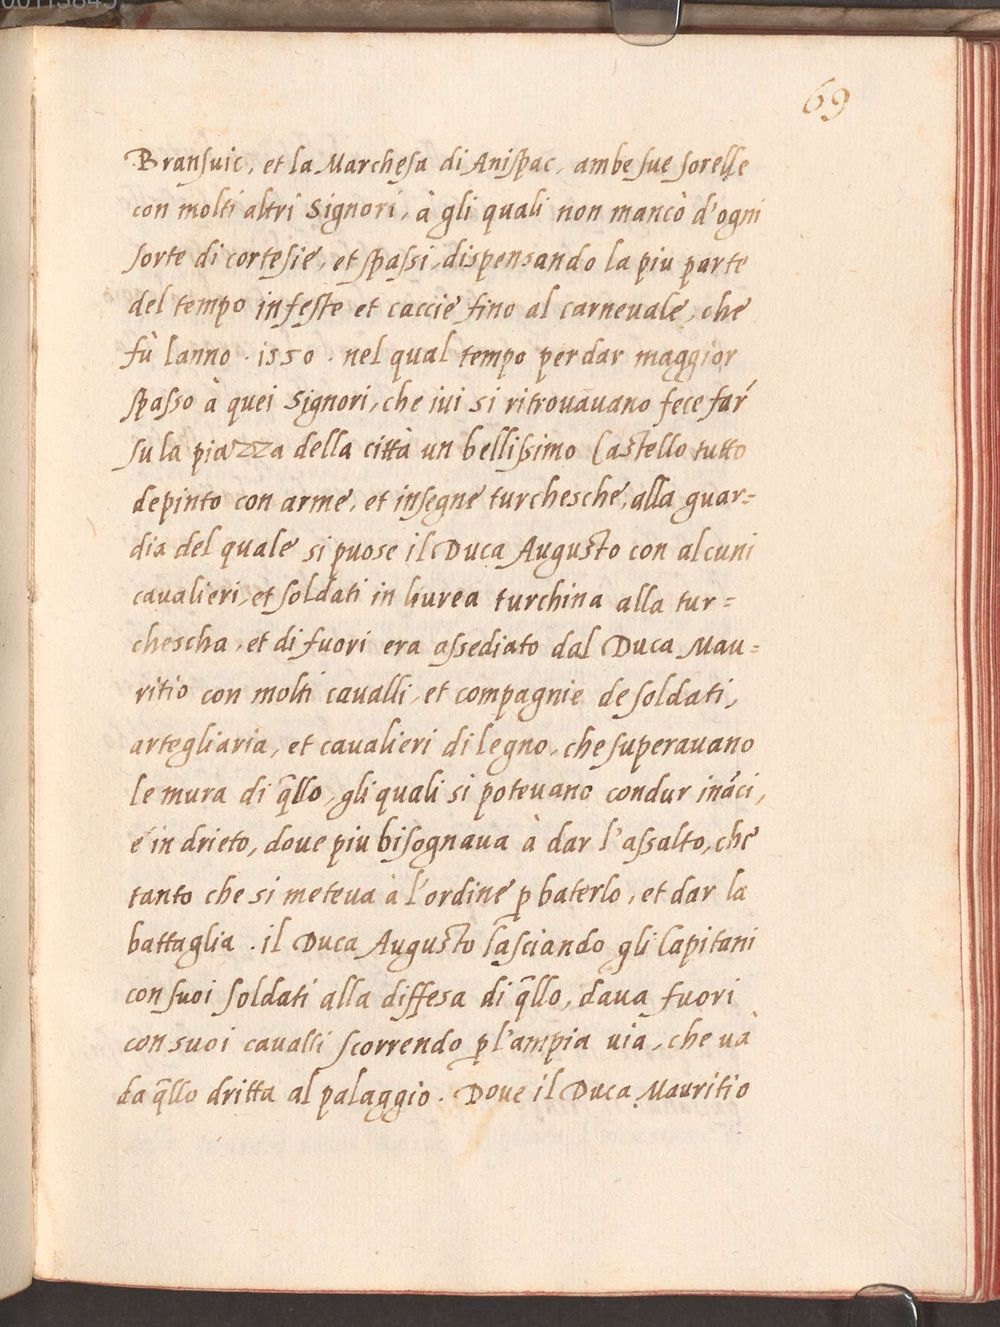 69
Bransuic, et la Marchesa di Anispac, ambe sue sorelle
con molti altri Signori, à gli quali non mancò d'ogni
sorte di cortesie, et spassi, dispensando la piu parte
del tempo in feste et caccie fino al carneuale, che
fù lanno · 1550 · nel qual tempo per dar maggior
spasso à quei Signori, che iui si ritrouauano fece far
su la piazza della città un bellissimo Castello tutto
depinto con arme, et insegne turchesche, alla guar=
dia del quale si puose il Duca Augusto con alcuni
caualieri, et soldati in liurea turchina alla tur=
chescha, et di fuori era assediato dal Duca Mau=
ritio con molti caualli, et compagnie de soldati,
artegliaria, et caualieri di legno, che superauano
le mura di q̄llo, gli quali si poteuano condur ināci,
e in drieto, doue piu bisognaua à dar l'assalto, che
tanto che si meteua à l'ordine p baterlo, et dar la
battaglia . il Duca Augusto lasciando gli Capitani
con suoi soldati alla diffesa di q̄llo, daua fuori
con suoi caualli scorrendo p l'ampia uia, che uà
da q̄llo dritta al palaggio. Doue il Duca Mauritio